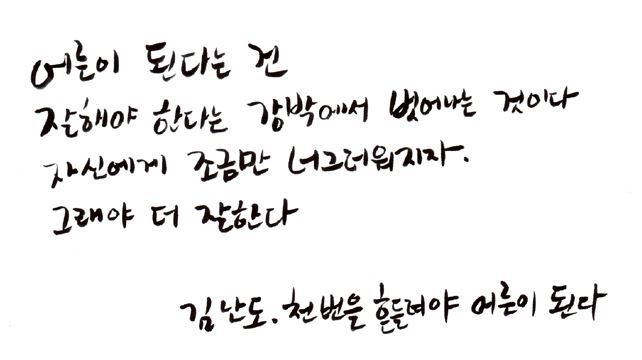 어른이 된다는 건
잘해야 한다는 강박에서 벗어나는 것이다
자신에게 조금만 너그러워지자.
그래야 더 잘한다
김난도. 천번을 흔들려야 어른이 된다